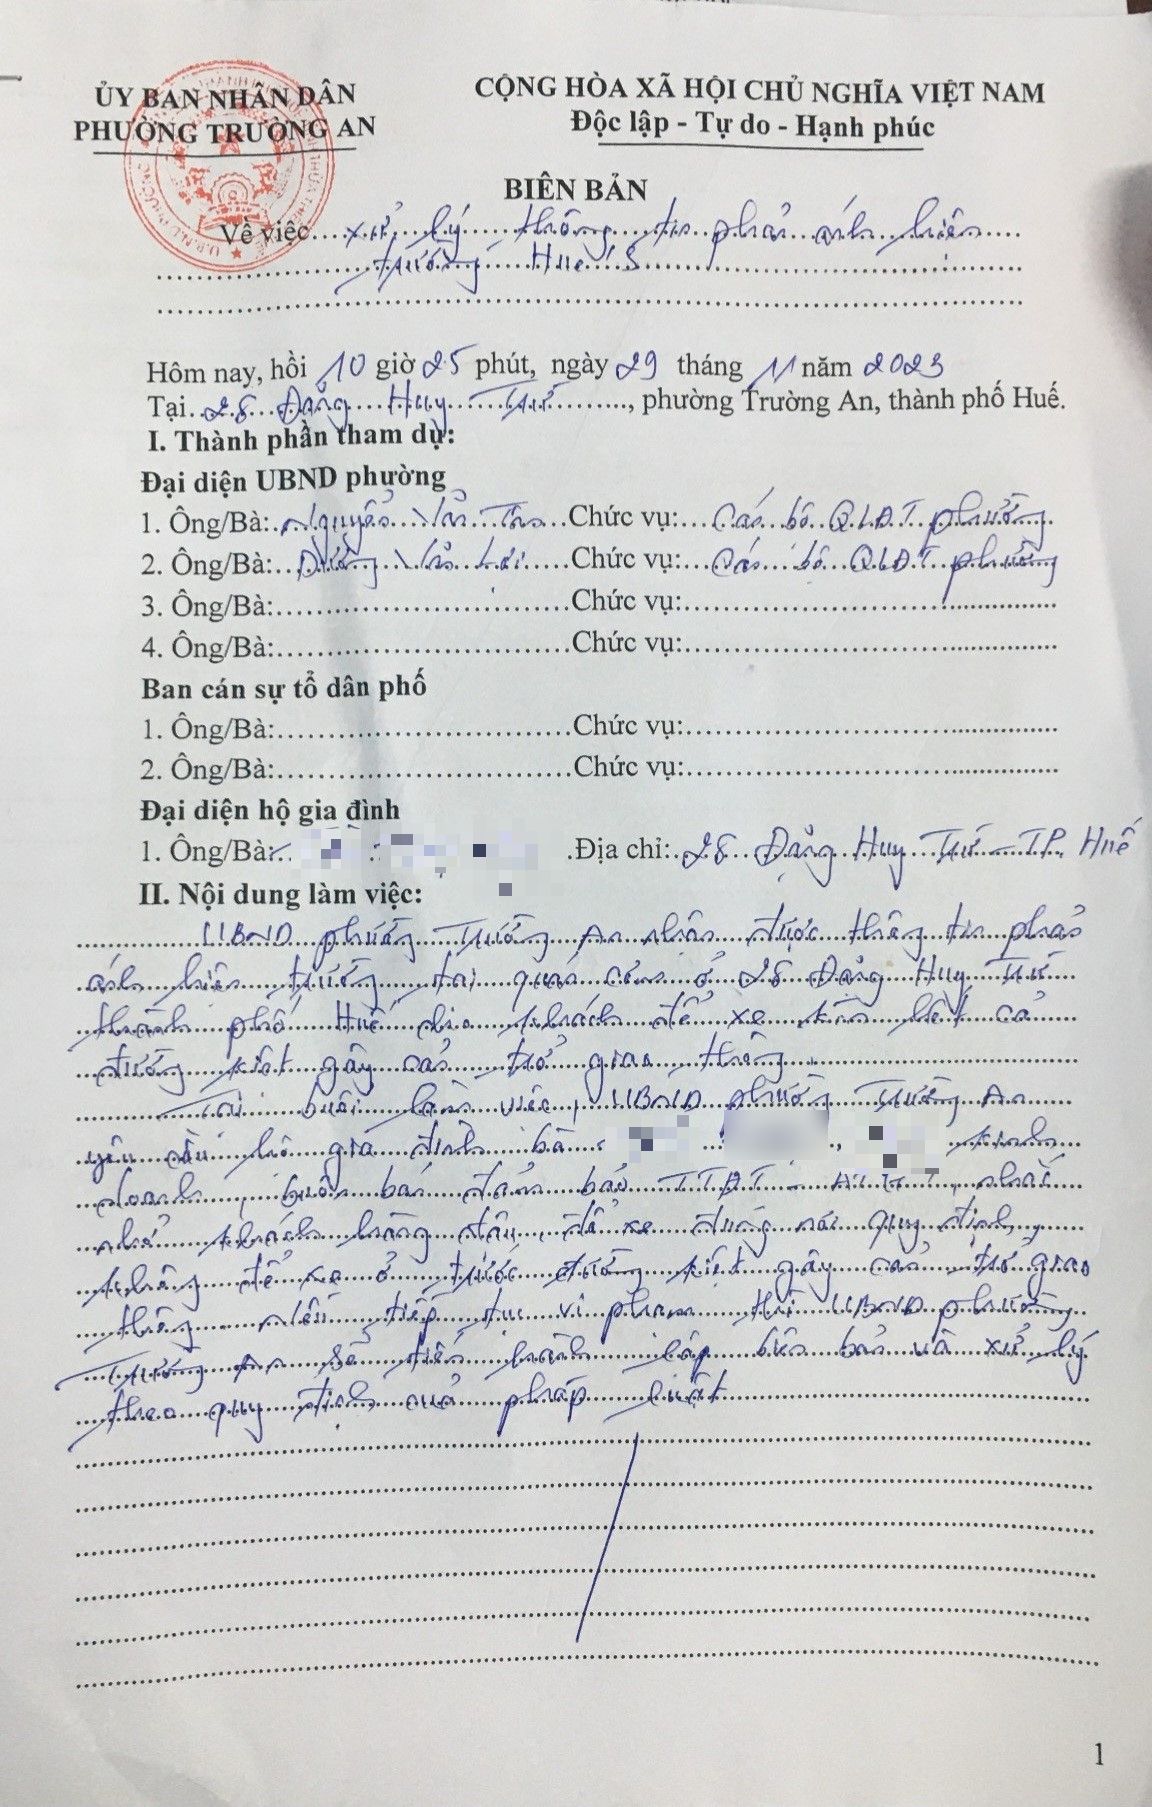 ỦY BAN NHÂN DÂN
PHƯỜNG TRƯỜNG AN
CỘNG HÒA XÃ HỘI CHỦ NGHĨA VIỆT NAM
Độc lập - Tự do - Hạnh phúc
BIÊN BẢN
Về việc xử lý thông tin phản ánh hiện
trường Huế S
Hôm nay, hồi 10 giờ 25 phút, ngày 29 tháng 11 năm 2023
Tại 28 Đặng Huy Trứ, phường Trường An, thành phố Huế.
I. Thành phần tham dự:
Đại diện UBND phường
1. Ông/Bà: Nguyễn Văn Chức vụ: Cán bộ QLĐT phường
2. Ông/Bà: Dương Văn Chức vụ: Cán bộ QLĐT phường
3. Ông/Bà: Chức vụ:
4. Ông/Bà: Chức vụ:
Ban cán sự tổ dân phố
1. Ông/Bà: Chức vụ:
2. Ông/Bà: Chức vụ:
Đại diện hộ gia đình
1. Ông/Bà: Địa chỉ: 28 Đặng Huy Trứ - TP. Huế
II. Nội dung làm việc:
UBND phường Trường An nhận được thông tin phản
ánh hiện trường tại quán cơm ở 28 Đặng Huy Trứ
thành phố Huế cho khách để xe kín hết cả
đường kiệt gây cản trở giao thông
Tại buổi làm việc, UBND phường Trường An
yêu cầu hộ gia đình bà kinh
doanh, buôn bán đảm bảo TTĐT - ATGT, nhắc
nhở khách hàng đậu, để xe đúng nơi quy định,
không để xe ở trước đường kiệt gây cản trở giao
thông nếu tiếp tục vi phạm thì UBND phường
Trường An sẽ tiến hành lập biên bản và xử lý
theo quy định của pháp luật
1